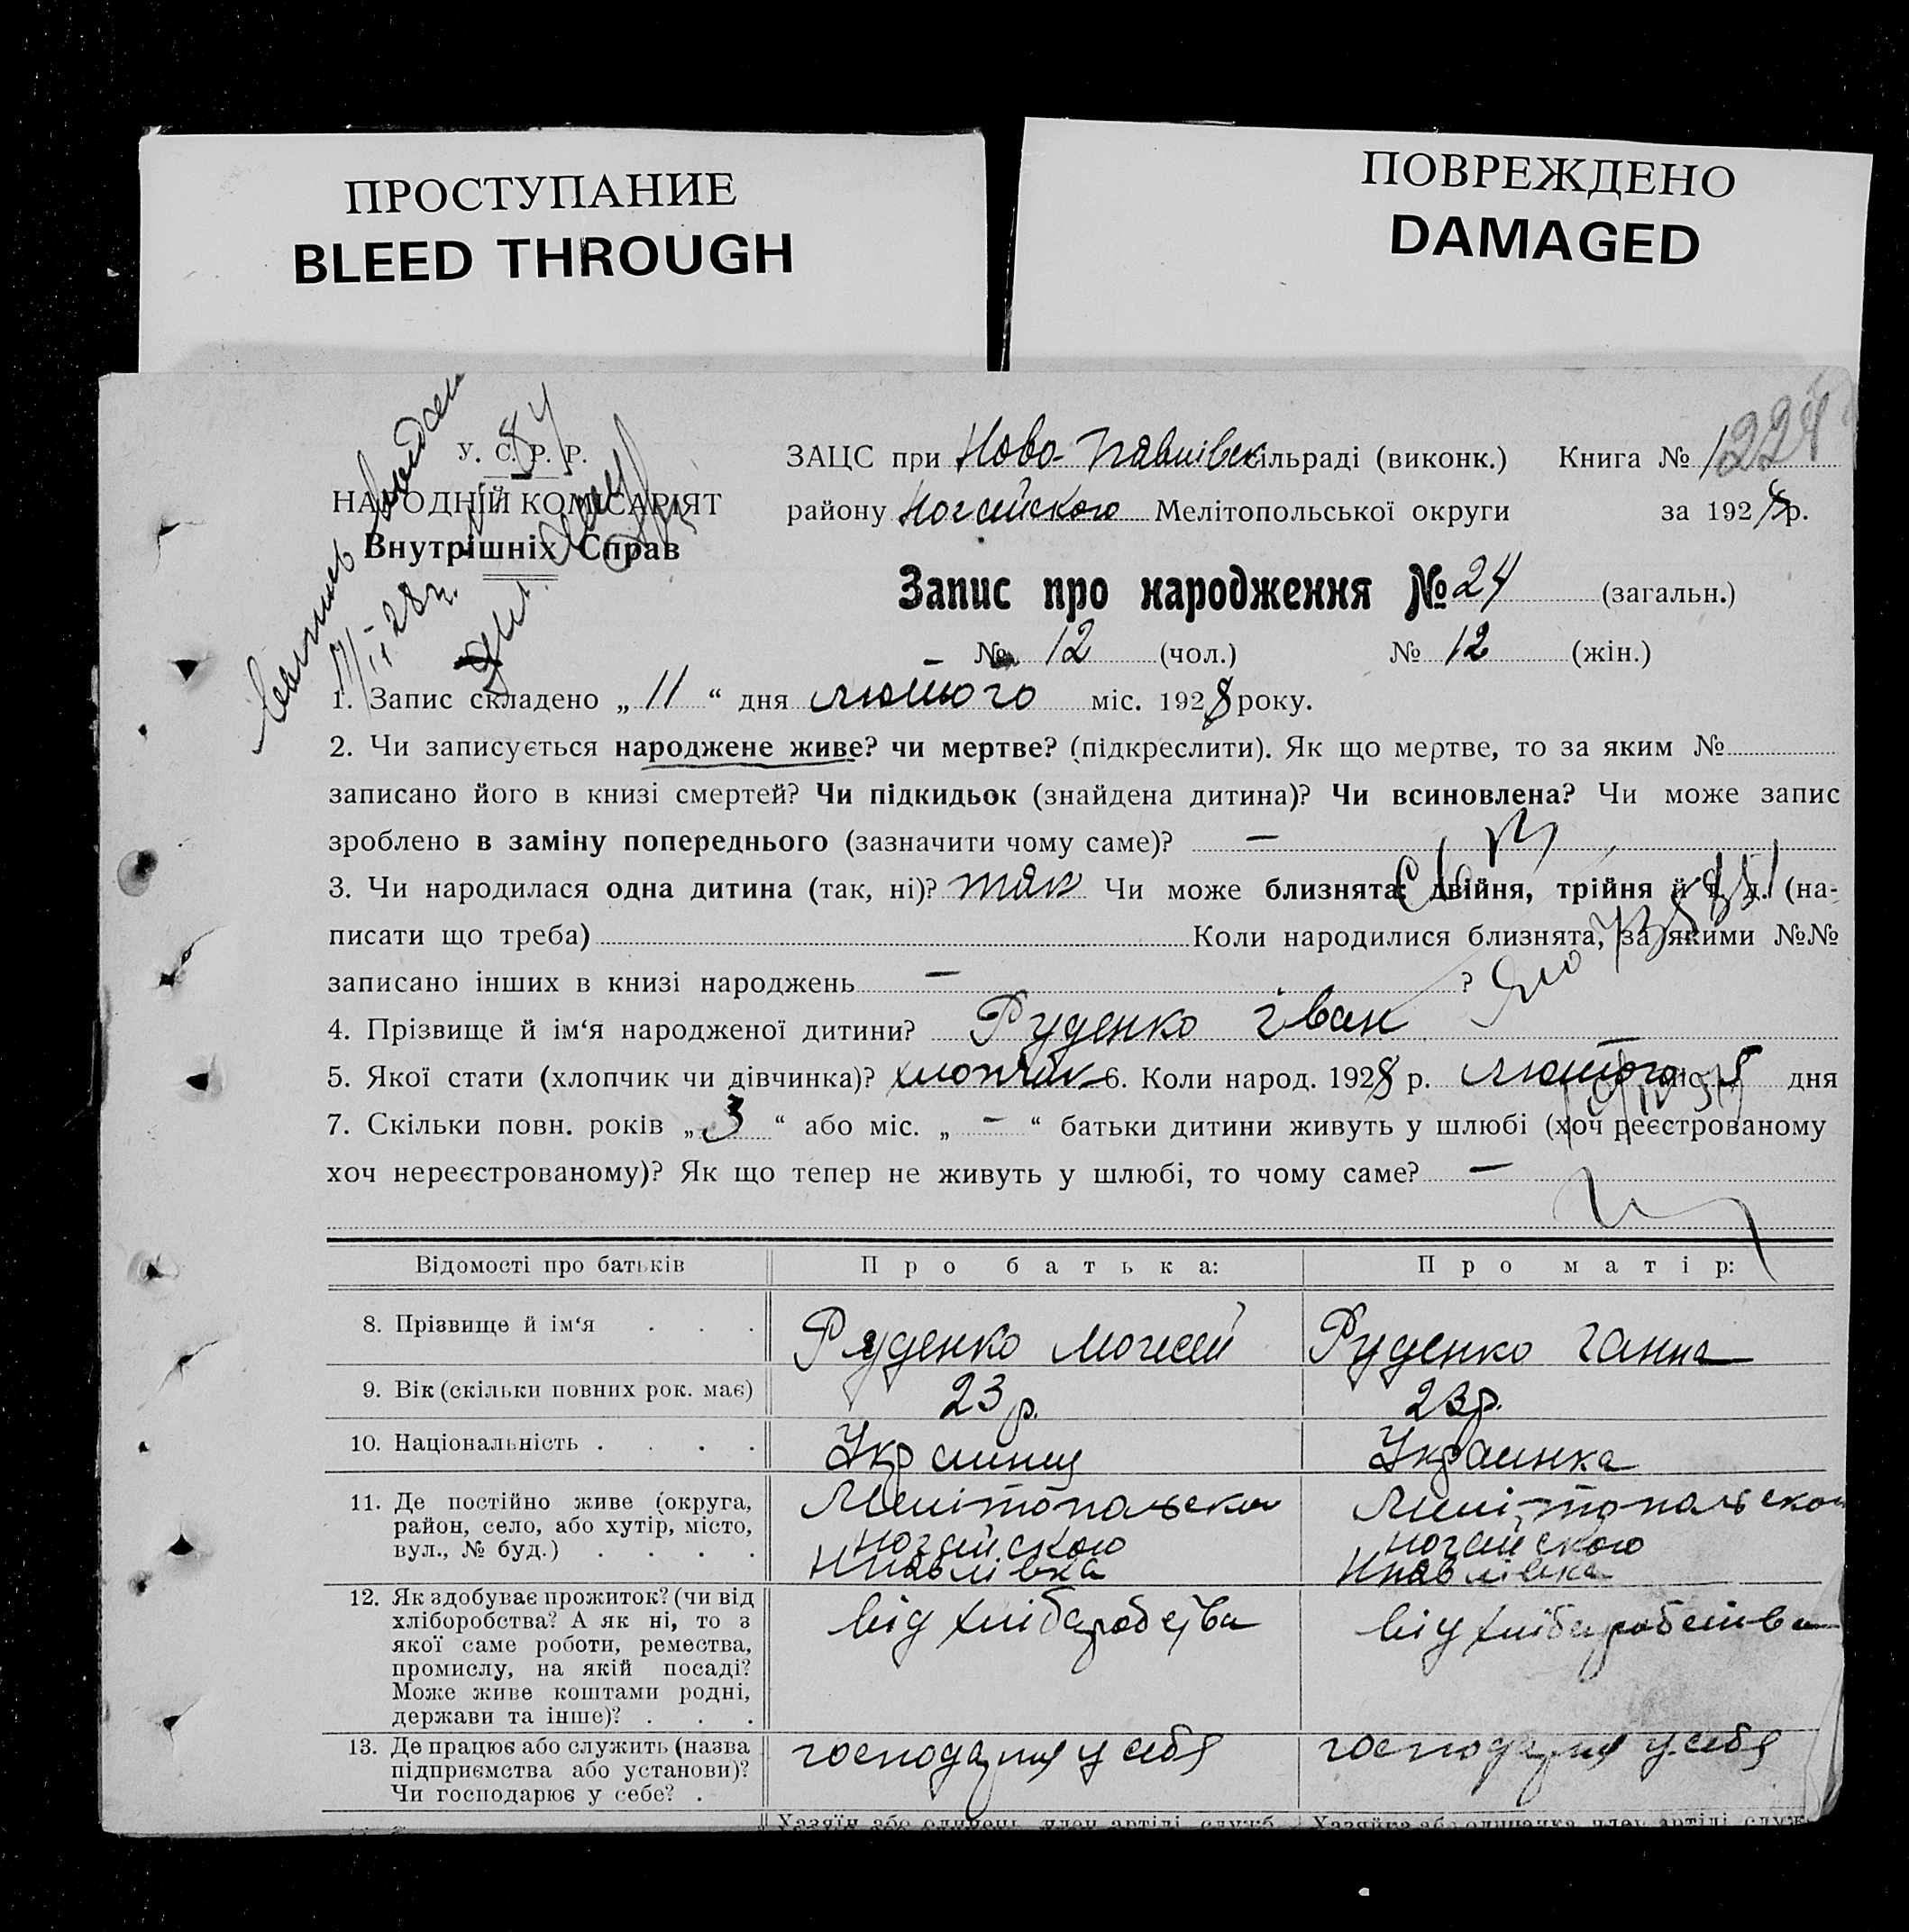 ПРОСТУПАНИЕ
BLEED THROUGH
ПОВРЕЖДЕНО
DAMAGED
У. С. Р. Р.
НАРОДНІЙ КОМІСАРІЯТ
Внутрішніх Справ
ЗАЦС при Ново-Павлівск сільраді (виконк.) Книга № 1
району Ногайского Мелітопольської округи за 1928 р.
Запис про народження № 24 (загальн.)
№ 12 (чол.) № 12 (жін.)
1. Запис складено „ 11 “ дня лютого міс. 1928 року.
2. Чи записується народжене живе? чи мертве? (підкреслити). Як що мертве, то за яким №
записано його в книзі смертей? Чи підкидьок (знайдена дитина)? Чи всиновлена? Чи може запис
зроблено в заміну попереднього (зазначити чому саме)? —
3. Чи народилася одна дитина (так, ні)? так Чи може близнята: двійня, трійня й т. д. (на-
писати що треба) Коли народилися близнята, за якими №№
записано інших в книзі народжень — ?
4. Прізвище й ім‘я народженої дитини? Руденко Іван
5. Якої стати (хлопчик чи дівчинка)? хлопчик 6. Коли народ. 1928 р. лютого міс. 5 дня
7. Скільки повн. років „ 3 “ або міс. „ — “ батьки дитини живуть у шлюбі (хоч реєстрованому
хоч нереєстрованому)? Як що тепер не живуть у шлюбі, то чому саме? —
Відомості про батьків Про батька: Про матір:
8. Прізвище й ім‘я . . . Руденко Мойсей Руденко Ганна
9. Вік (скільки повних рок. має) 23 р. 23 р.
10. Національність . . . . Украинец Украинка
11. Де постійно живе (округа,
район, село, або хутір, місто,
вул., № буд.) . . . .
Мелітопольскои
ногайского
Нпавлівка
Мелітопольскои
ногайского
Нпавлівка
12. Як здобуває прожиток? (чи від
хліборобства? А як ні, то з
якої саме роботи, ремества,
промислу, на якій посаді?
Може живе коштами родні,
держави та інше)? . . .
від хлібаробства
від хлібаробства
13. Де працює або служить (назва
підприємства або установи)?
Чи господарює у себе? .
господария у себя
господария у себя
Хазяїн або одинець, член артілі, служб. Хазяйка або одиначка, член артілі, служ